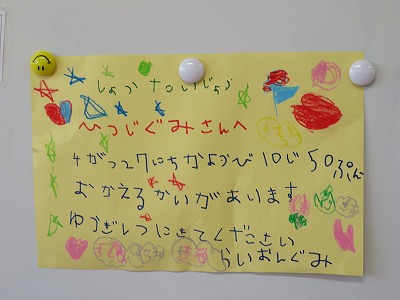 しょうたいじょう
ひつじぐみさんへ
4がつ27にちかようび10じ50ぷん
おわかえるかいがあります
ゆうぎしつにきてください
らいおんぐみ